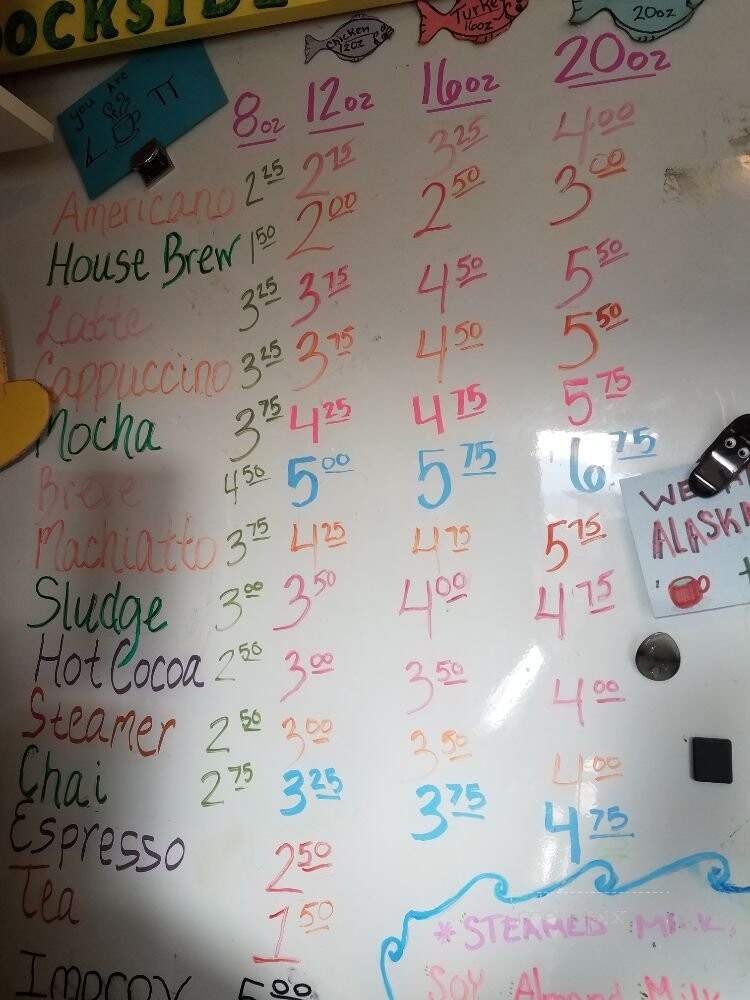 OCKSIDE
Chicken 12oz
Turke 16oz
20oz
you Are
8oz 12oz 16oz 20oz
Americano 2 25 2 75 3 25 4 00
House Brew 1 50 2 00 2 50 3 00
Latte 3 25 3 75 4 50 5 50
Cappuccino 3 25 3 75 4 50 5 50
Mocha 3 75 4 25 4 75 5 75
Breve 4 50 5 00 5 75 6 75
Machiatto 3 75 4 25 4 75 5 75
Sludge 3 00 3 50 4 00 4 75
Hot Cocoa 2 50 3 00 3 50 4 00
Steamer 2 50 3 00 3 50 4 00
Chai 2 75 3 25 3 75 4 75
Espresso 2 50
Tea 1 50
Improv 5 00
WE
ALASKA
* STEAMED MILK
Soy Almond Milk